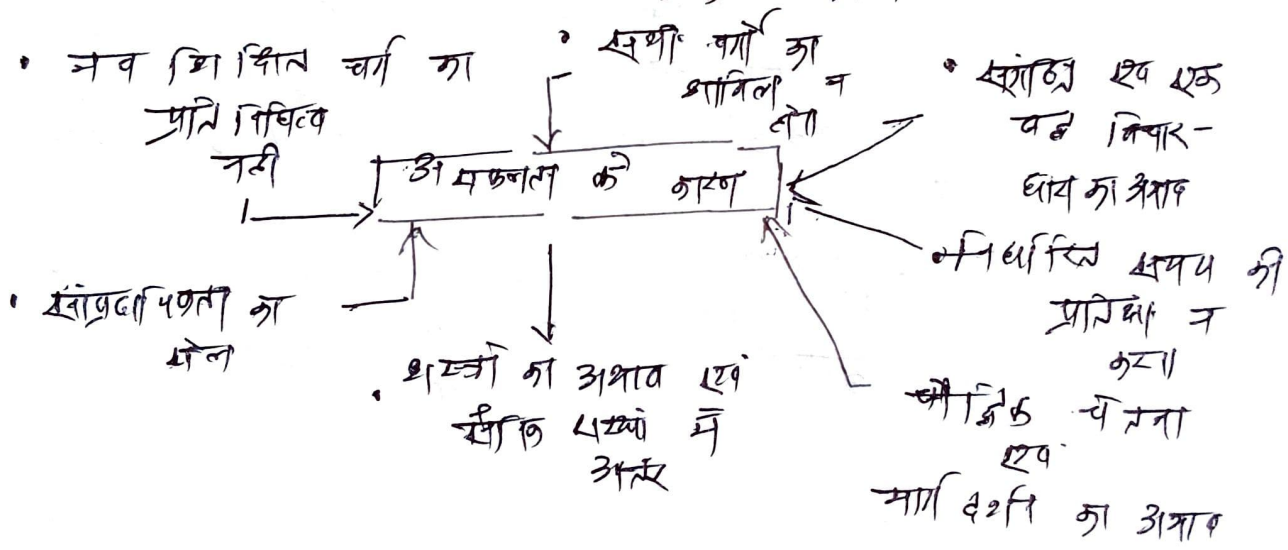 • नव शिक्षित वर्ग का
प्रतिनिधित्व
नही
• सभी वर्गों का
शामिल न
होना
• संगठित एवं एक
बद्ध विचार-
धारा का अभाव
असफलता के कारण
• निर्धारित समय की
प्रतिक्षा न
करना
• सांप्रदायिकता का
खेल
• शस्त्रों का अभाव एवं
सैनिक संख्या में
अंतर
बौद्धिक चेतना
एवं
मार्गदर्शन का अभाव